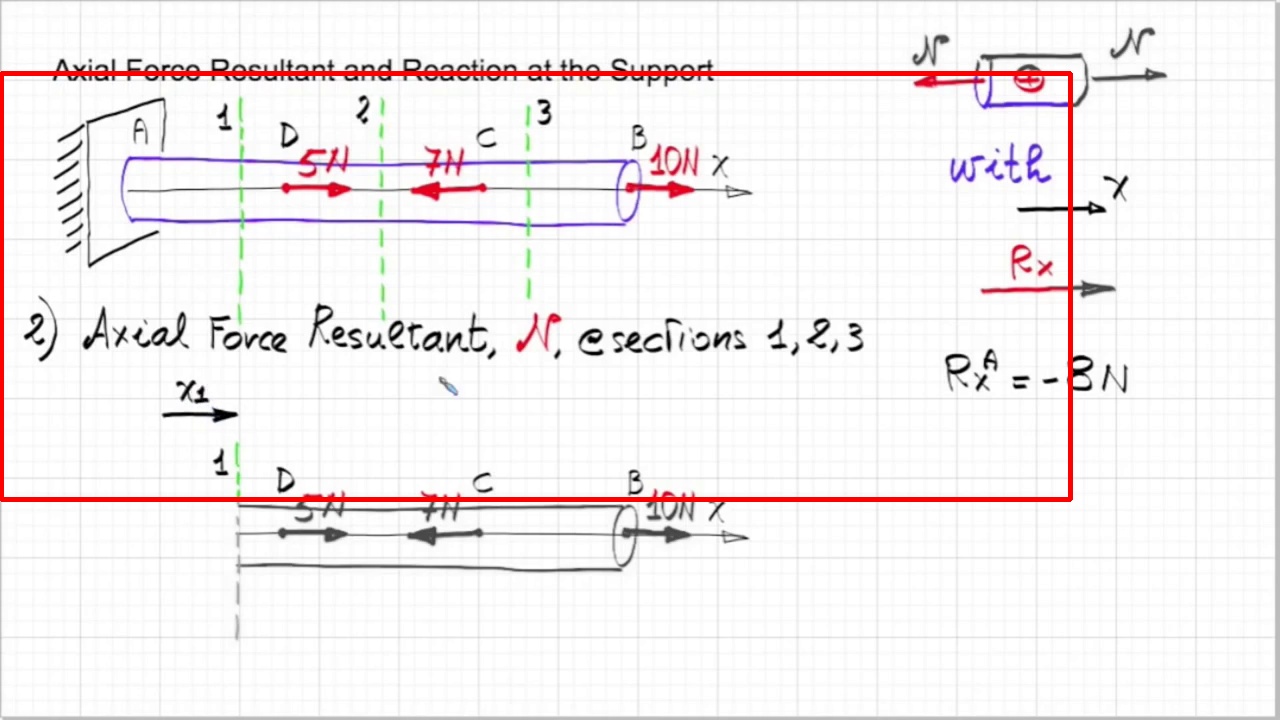 Axial Force Resultant and Reaction at the Support
N N
A 1 D 2 C 3 B
5N 7N 10N x
with
x
Rx
2) Axial Force Resultant, N, @sections 1,2,3
RxA = -8N
x1
1 D C B
5N 7N 10N x